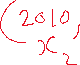 (2010,
x₂